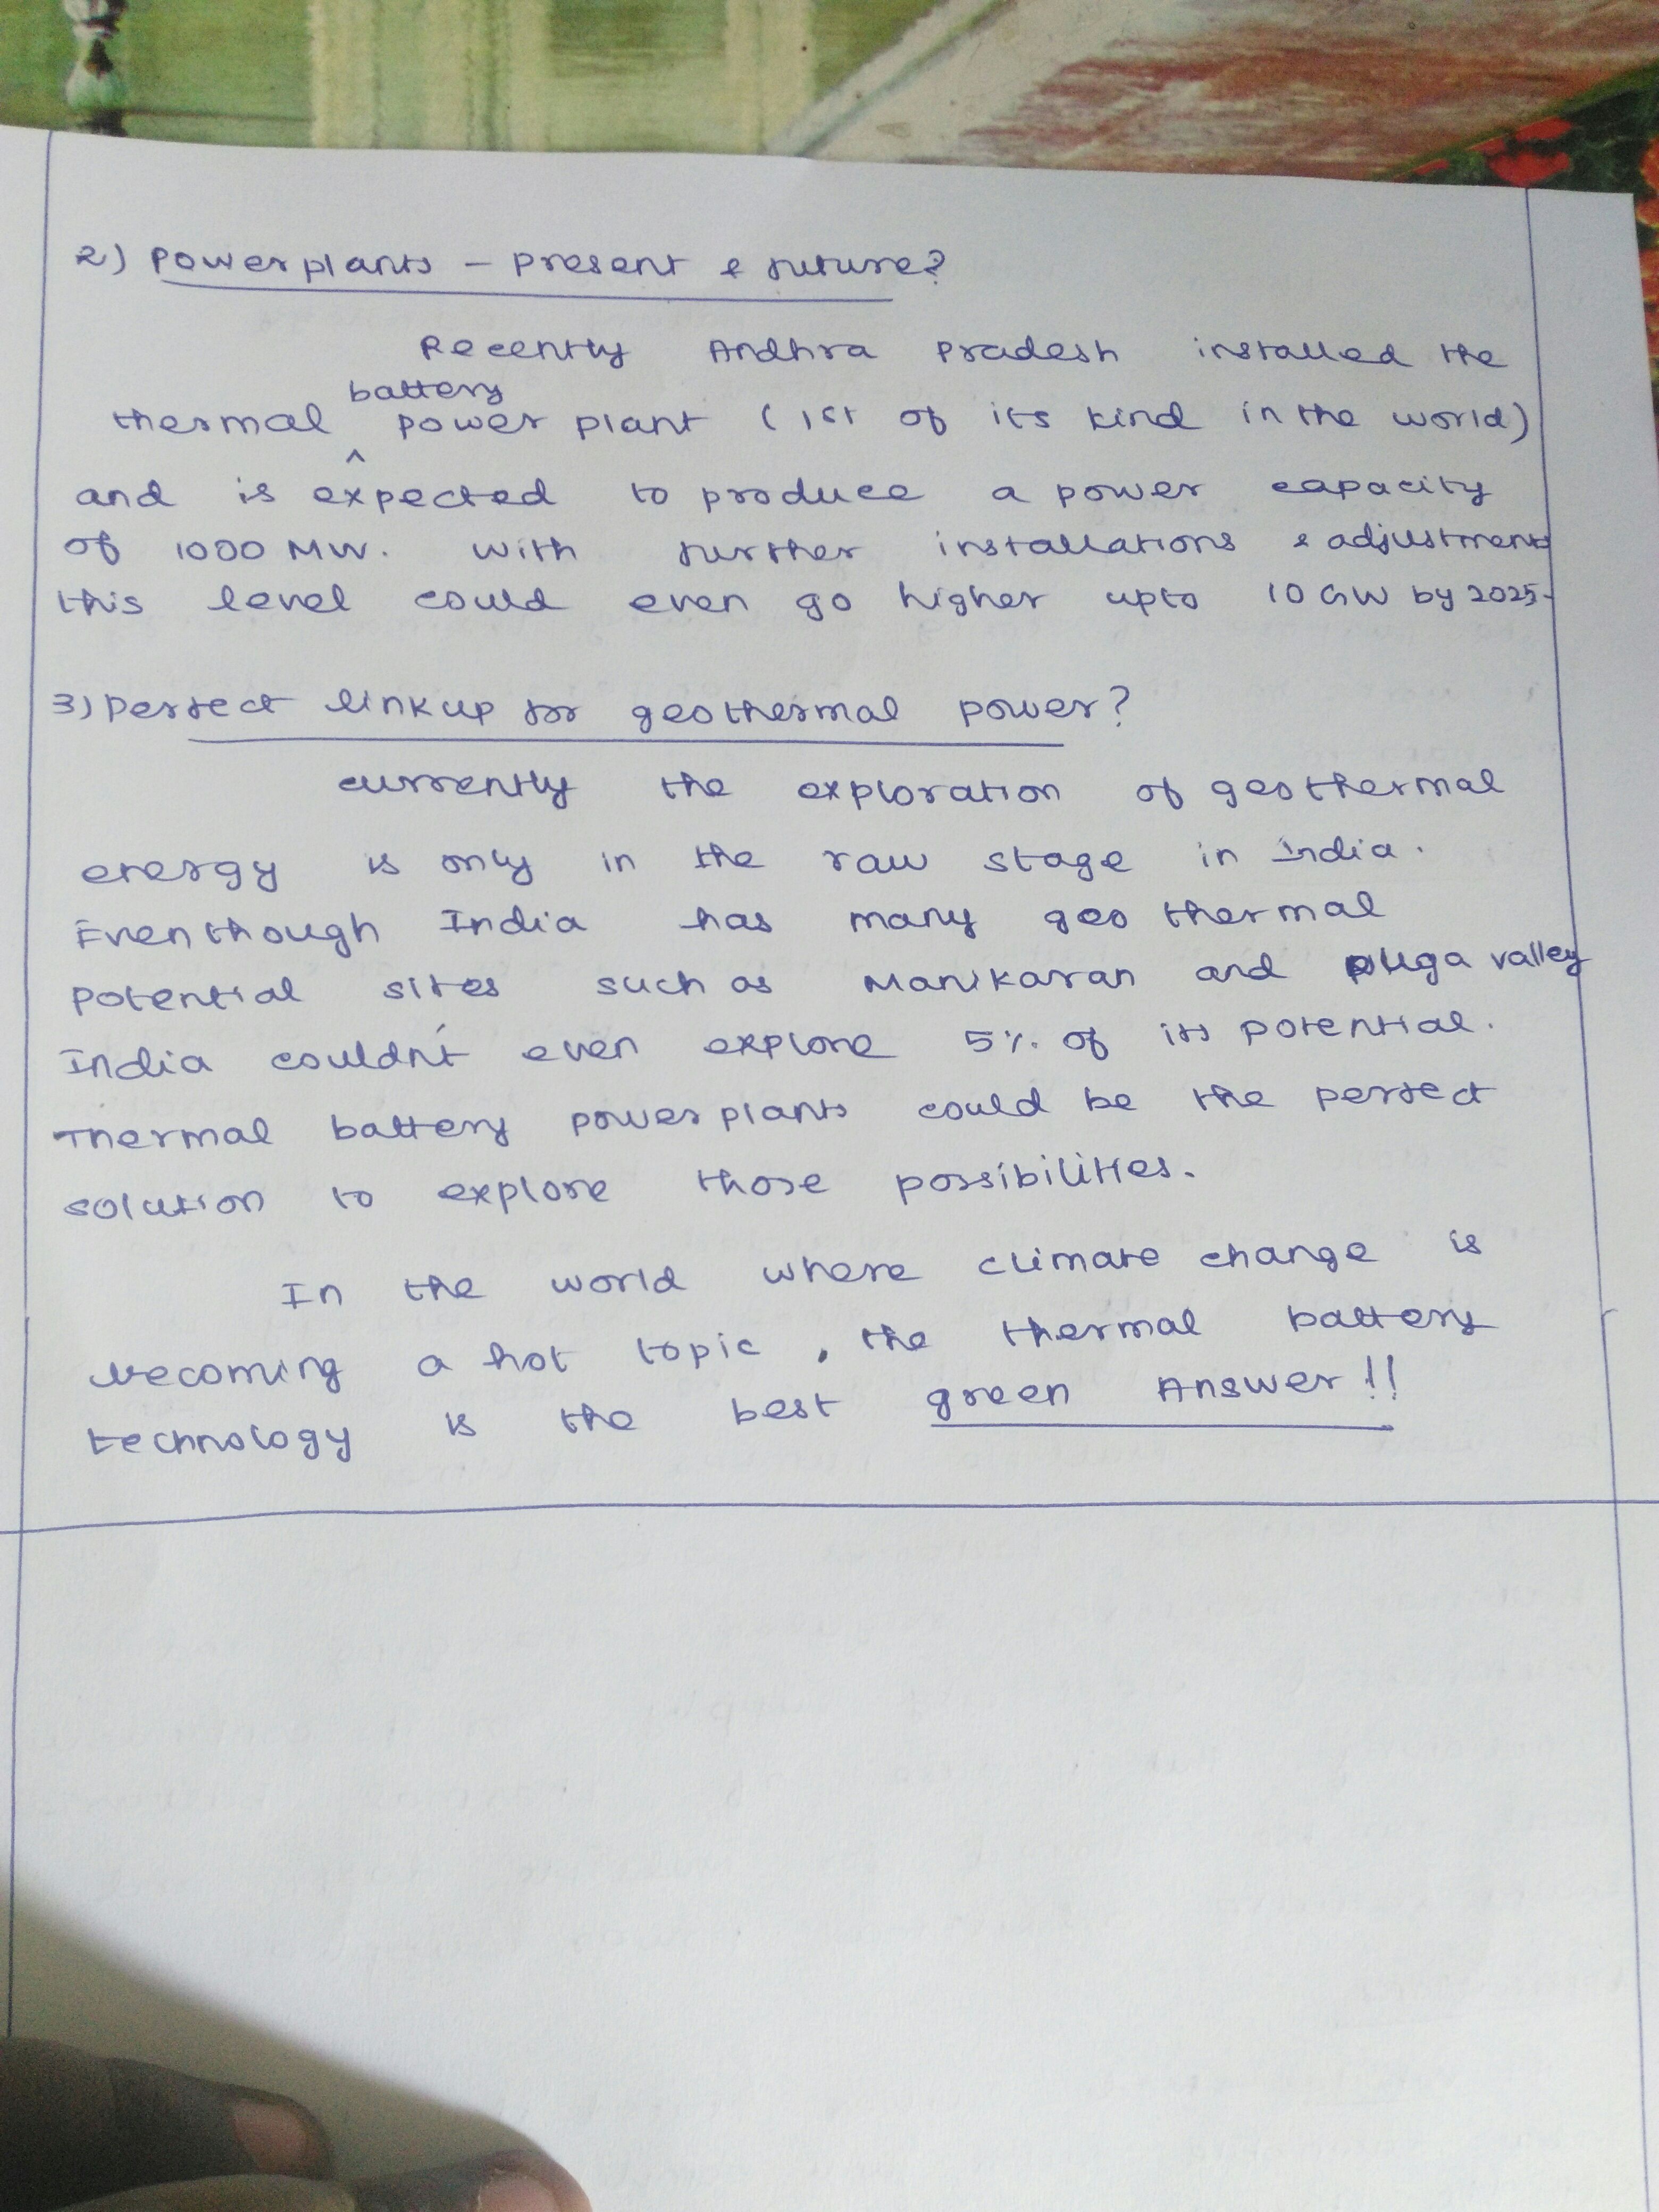 2) Powerplants - Present & future?
Recently Andhra Pradesh installed the
battery
thermal ^ power plant (1st of its kind in the world)
and is expected to produce a power capacity
of 1000 MW. With further installations & adjustments
this level could even go higher upto 10 GW by 2025.
3) Perfect linkup for geothermal power?
Currently the exploration of geothermal
energy is only in the raw stage in India.
Eventhough India has many geo thermal
potential sites such as Manikaran and Puga valley
India couldn't even explore 5% of its potential.
Thermal battery powerplants could be the perfect
solution to explore those possibilities.
In the world where climate change is
becoming a hot topic, the thermal battery
technology is the best green Answer!!